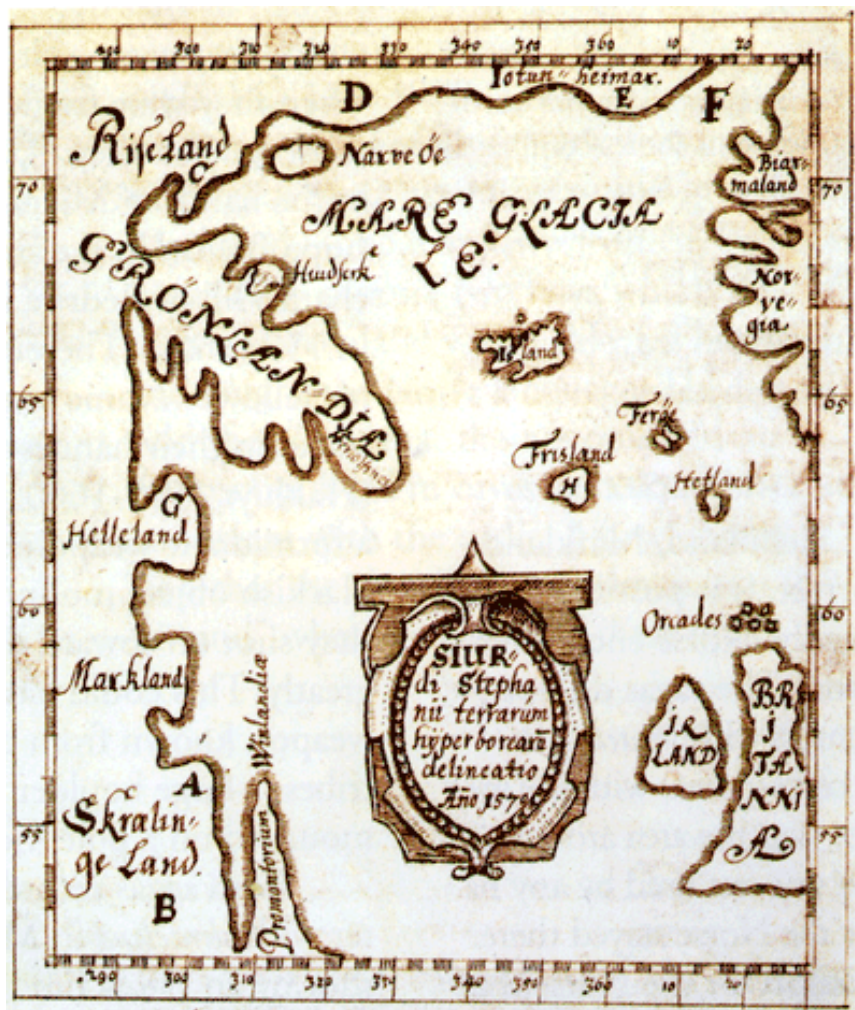 290 300 310 320 330 340 350 360 10 20
Iotun=heimar.
D
E
F
Riseland
C
Narve Oe
Biar-
maland
70
70
MARE GLACIA
LE.
GRONLAN=DIÆ
Huidserk
Nor-
ve-
gia
Island
65
65
Feroe
Frisland
H
Hetland
G
Helleland
60
60
Orcades
Markland
SIUR-
di Stepha
nii terrarum
hyperborearū
delineatio
Año 1570
IR
LAND
BRI
TA
NNI
Æ
A
Skræling-
ge Land.
B
Promontorium Winlandiæ
55
55
290 300 310 320 33 340 350 360 10 20